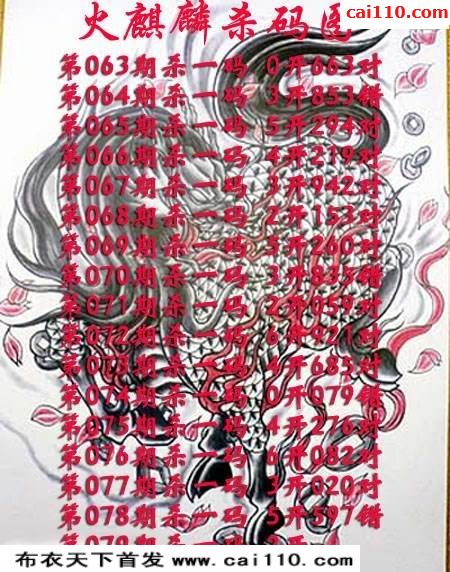 cai110.com
火麒麟杀码图
第063期杀一码 0开663对
第064期杀一码 3开853错
第065期杀一码 5开294对
第066期杀一码 4开219对
第067期杀一码 3开942对
第068期杀一码 2开153对
第069期杀一码 5开260对
第070期杀一码 3开835错
第071期杀一码 2开059对
第072期杀一码 6开921对
第073期杀一码 4开685对
第074期杀一码 0开079错
第075期杀一码 4开276对
第076期杀一码 6开082对
第077期杀一码 3开020对
第078期杀一码 5开597错
第079期杀一码 2开
布衣天下首发 www.cai110.com